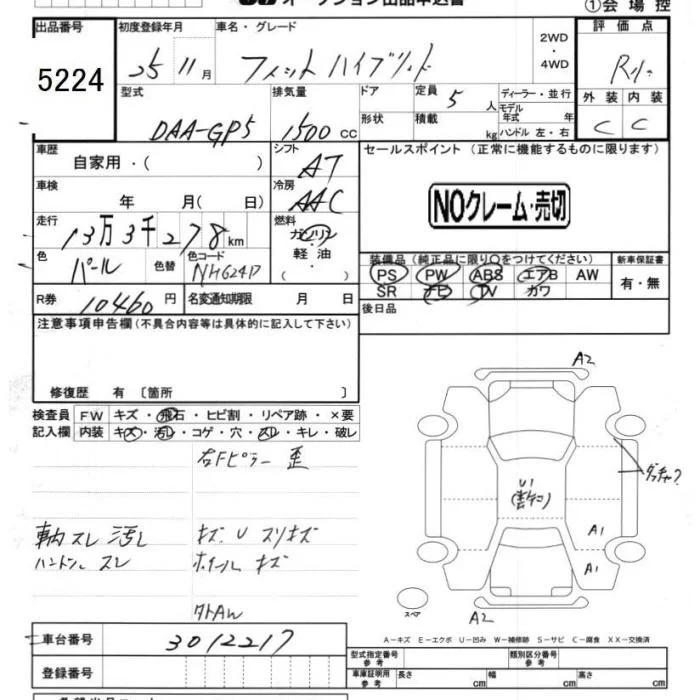 オークション出品申込書 ①会場控
出品番号 初度登録年月 車名・グレード 2WD・4WD 評価点
5224 25 11月 フィットハイブリッド R
外装 内装
C C
型式 排気量 ドア 定員 ディーラー・並行
DAA-GP5 1500 CC 5人 モデル年式 年
形状 積載 kg ハンドル 左・右
車歴 シフト セールスポイント (正常に機能するものに限ります)
自家用・( ) AT
車検 冷房
年 月(日) AAC NOクレーム・売切
走行 燃料
13万3千278km ガソリン・軽油 ( )
色 色替 色コード
パール NH624P
装備品(純正品に限り○をつけてください) 新車保証書
PS PW ABS エアB AW 有・無
SR ナビ TV カワ
R券 10460円 名変通知期限 月 日
後日品
注意事項申告欄(不具合内容等は具体的に記入して下さい)
修復歴 有 〔箇所 〕
検査員 FW キズ・飛石・ヒビ割・リペア跡・×要
記入欄 内装 キズ・汚れ・コゲ・穴・スレ・キレ・破レ
右Fピラー 歪
車内スレ 汚レ キズ U スリキズ
ハンドル スレ ホイール キズ
外AW
A2
U1
A1
A1
A2
スペア
A-キズ E-エクボ U-凹み W-補修跡 S-サビ C-腐食 XX-交換済
車台番号 3012217
型式指定番号 参考 類別区分番号 参考
登録番号 車庫証明用 参考 長さ cm 幅 cm 高さ cm